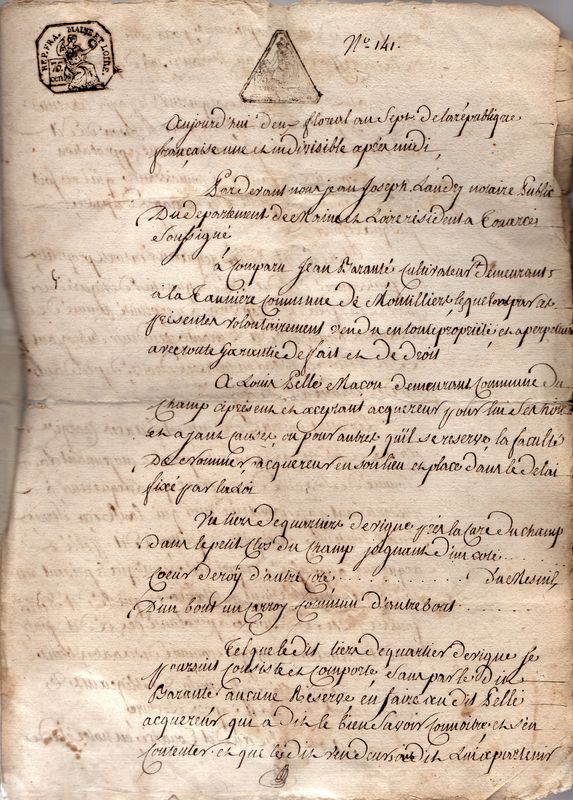 REP. FRA. MAINE ET LOIRE.
75
CEN
No. 141.
Aujourd'hui deux floreal an Sept. de la république
francaise une et indivisible après midi,
Pardevant nous jean Joseph Landry notaire Public
Du departement de Maine et Loire résident a Touarcé
Soussigné
à Comparu Jean Baranté Cultivateur demeurant
à la Tauniere Commune de Montilliers lequel par ces
présentes volontairement vendu en toute proprieté et a perpetuité
avec toute Garantie de fait et de droit
A Louis Pellé Maçon demeurant Commune du
Champ cÿ présent et aceptant acquereur pour lui Ses hoirs
et ajant causes ou pour autres qu'il se reserve la faculté
De Nommer acquereur en son lieu et place dans le delai
fixé par la Loi
Un tiers de quartier de vigne près la Care du champ
dans le petit Clos du Champ joignant d'un coté
Coeur de roy d'autre coté Du Mesnil
D'un bout un Carroy Commun d'autre bout
Tel que le dit tiers de quartier de vigne se
poursuit Consiste et Comporte Sans par le dit
Baranté aucune Reserve en faire au dit Pellé
acquereur qui a dit le bien Savoir Connoitre et s'en
Contenter et que le dit vendeur a dit Lui apartenir